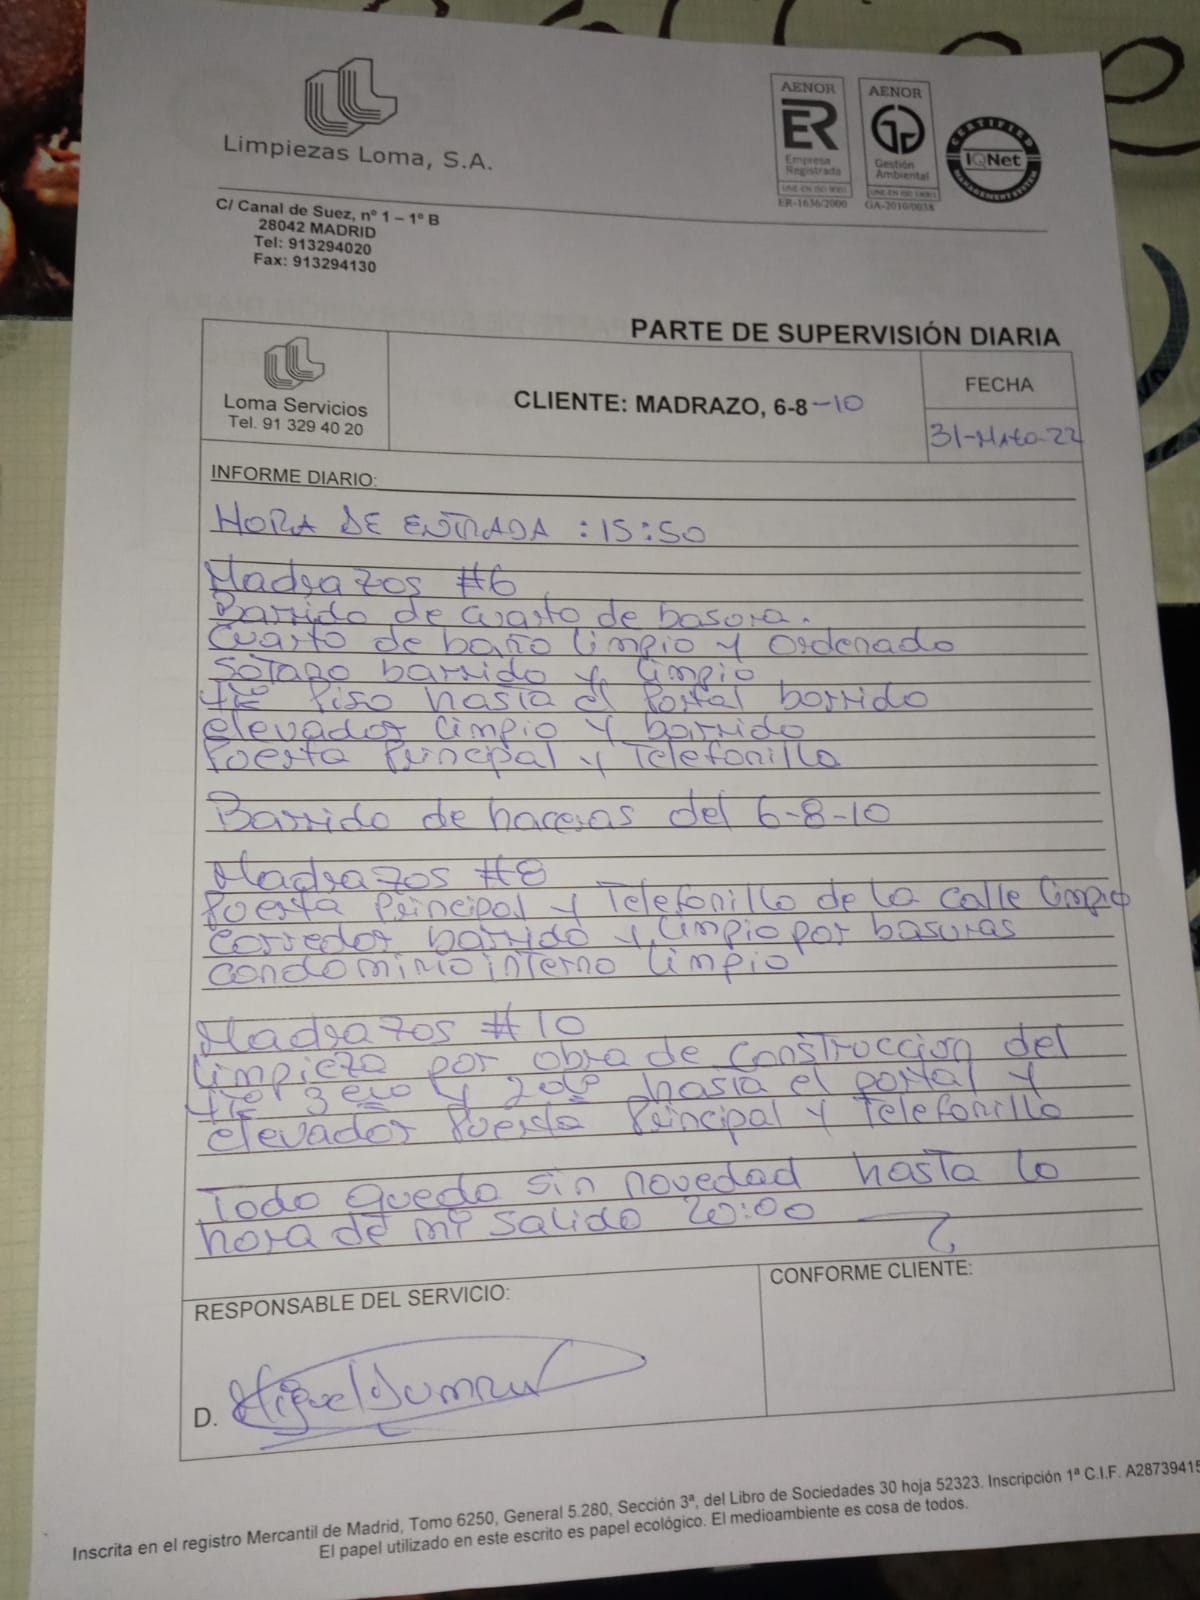 Limpiezas Loma, S.A.
AENOR
ER
Empresa
Registrada
UNE-EN ISO 9001
ER-1636/2000
AENOR
Gestión
Ambiental
UNE-EN ISO 14001
GA-2010/0038
CERTIFIED
IQNet
MANAGEMENT SYSTEM
C/ Canal de Suez, nº 1 – 1º B
28042 MADRID
Tel: 913294020
Fax: 913294130
PARTE DE SUPERVISIÓN DIARIA
Loma Servicios
Tel. 91 329 40 20
CLIENTE: MADRAZO, 6-8-10
FECHA
31-Mayo-22
INFORME DIARIO:
HORA DE ENTRADA : 15:50
Madrazos #6
Barrido de cuarto de basura.
Cuarto de baño limpio y ordenado
Sótano barrido y limpio
Piso hasta el Portal barrido
elevador limpio y barrido
Puerta Principal y Telefonillo
Barrido de haceras del 6-8-10
Madrazos #8
Puerta Principal y Telefonillo de la calle limpio
corredor barrido y limpio por basuras
condominio interno limpio
Madrazos #10
limpieza por obra de construccion del
3 ero y 2do hasta el portal y
elevador Puerta Principal y Telefonillo
Todo quedo sin novedad hasta la
hora de mi salida 20:00
RESPONSABLE DEL SERVICIO:
CONFORME CLIENTE:
D. Miguel
Inscrita en el registro Mercantil de Madrid, Tomo 6250, General 5.280, Sección 3ª, del Libro de Sociedades 30 hoja 52323. Inscripción 1ª C.I.F. A28739415
El papel utilizado en este escrito es papel ecológico. El medioambiente es cosa de todos.